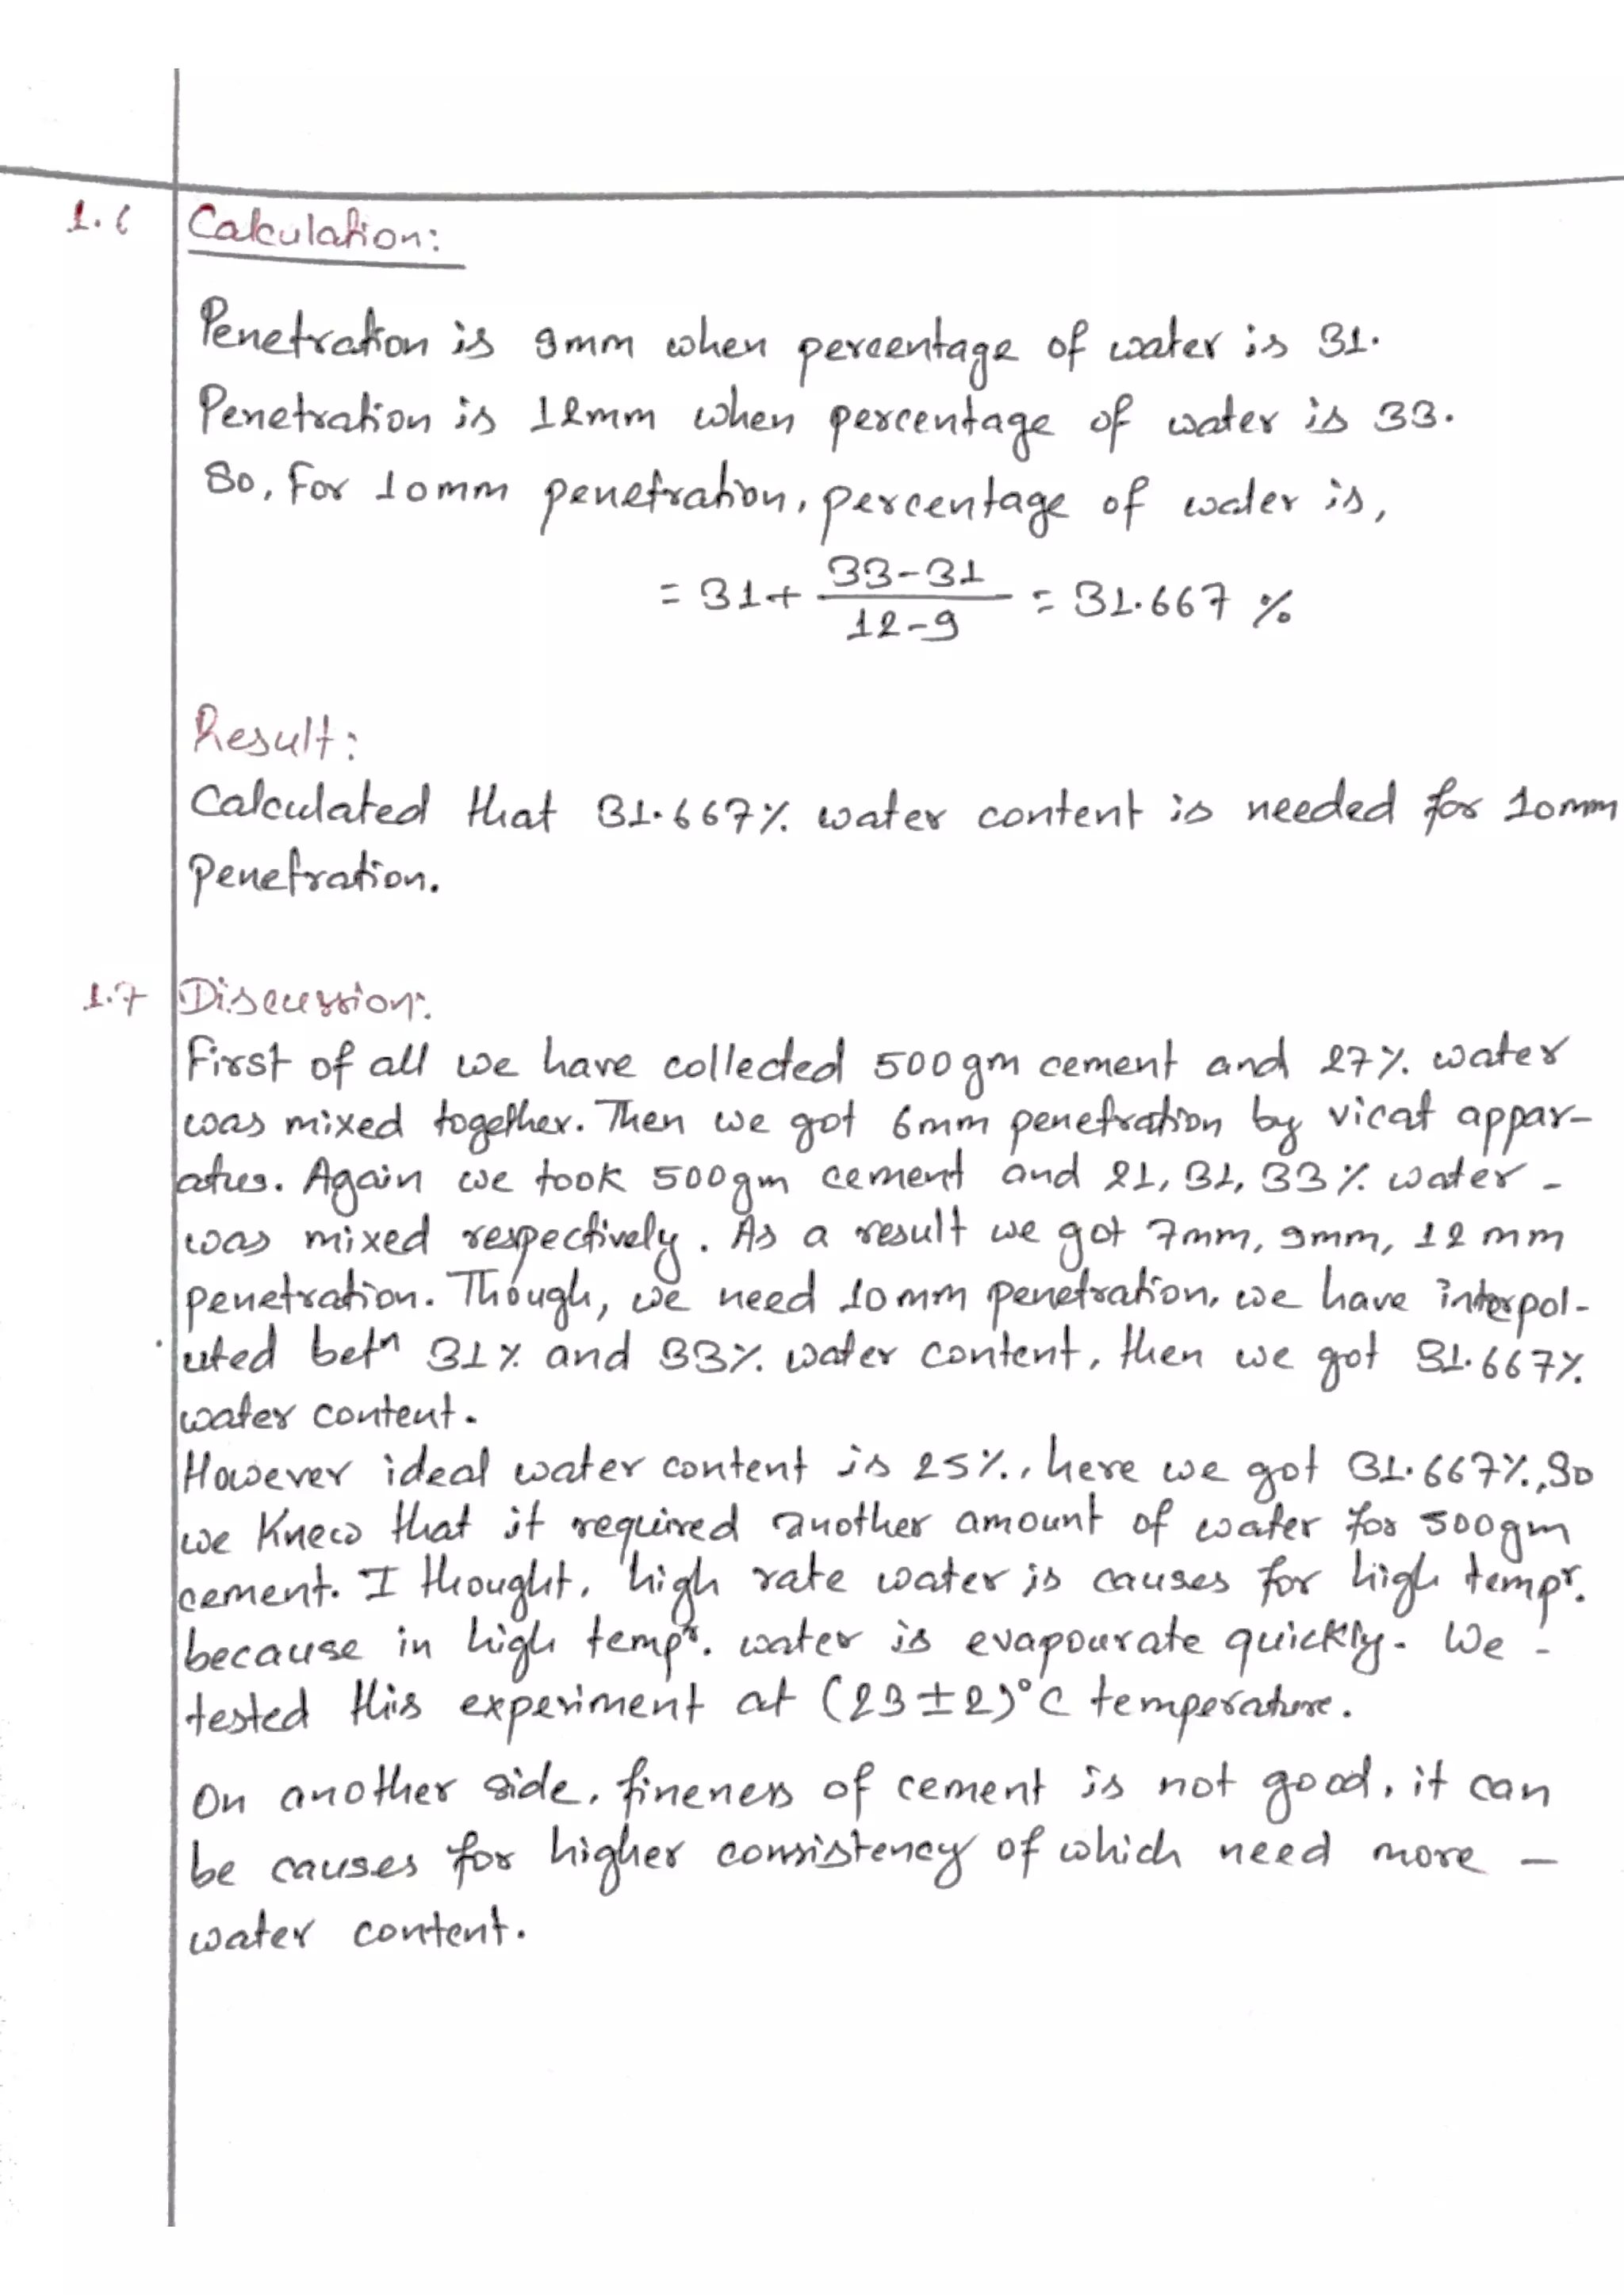 1.6 Calculation:
Penetration is 9mm when percentage of water is 31.
Penetration is 12mm when percentage of water is 33.
So, For 10mm penetration, percentage of water is,
= 31+ (33-31)/(12-9) = 31.667 %
Result:
Calculated that 31.667% water content is needed for 10mm
Penetration.
1.7 Discussion:
First of all we have collected 500gm cement and 27% water
was mixed together. Then we got 6mm penetration by vicat appar-
atus. Again we took 500gm cement and 21, 31, 33% water -
was mixed respectively. As a result we got 7mm, 9mm, 12mm
penetration. Though, we need 10mm penetration, we have interpol-
uted betn 31% and 33% water content, then we got 31.667%
water content.
However ideal water content is 25%, here we got 31.667%, So
we Knew that it required another amount of water for 500gm
cement. I thought, high rate water is causes for high tempr.
because in high tempr. water is evapourate quickly. We -
tested this experiment at (23±2)°C temperature.
On another side, fineness of cement is not good, it can
be causes for higher consistency of which need more -
water content.